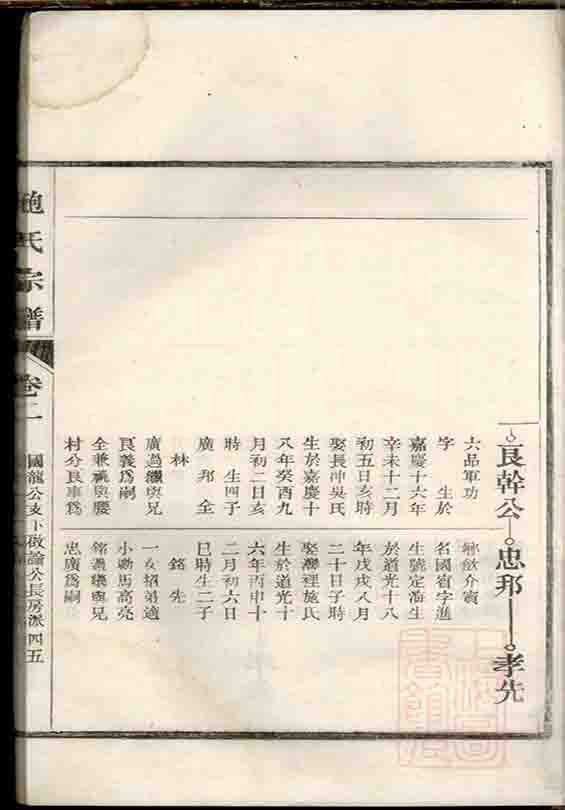 良幹公 忠邦 孝先
六品軍功
字 生於
嘉慶十六年
辛未十二月
初五日亥時
娶長冲吳氏
生於嘉慶十
八年癸酉九
月初二日亥
時 生四子
廣 邦 全
林
廣過繼與兄
良義為嗣
全兼祧與腰
村分良車為
介賓
名國宥字
生號定海生
於道光十八
年戊戌八月
二十日子時
娶灣裡施氏
生於道光十
六年丙申十
二月初六日
巳時生二子
銘 先
一女招弟適
小勘馬高亮
銘過繼與兄
忠廣為嗣
鮑氏宗譜
卷二
國龍公支下傲論公長房派 四五